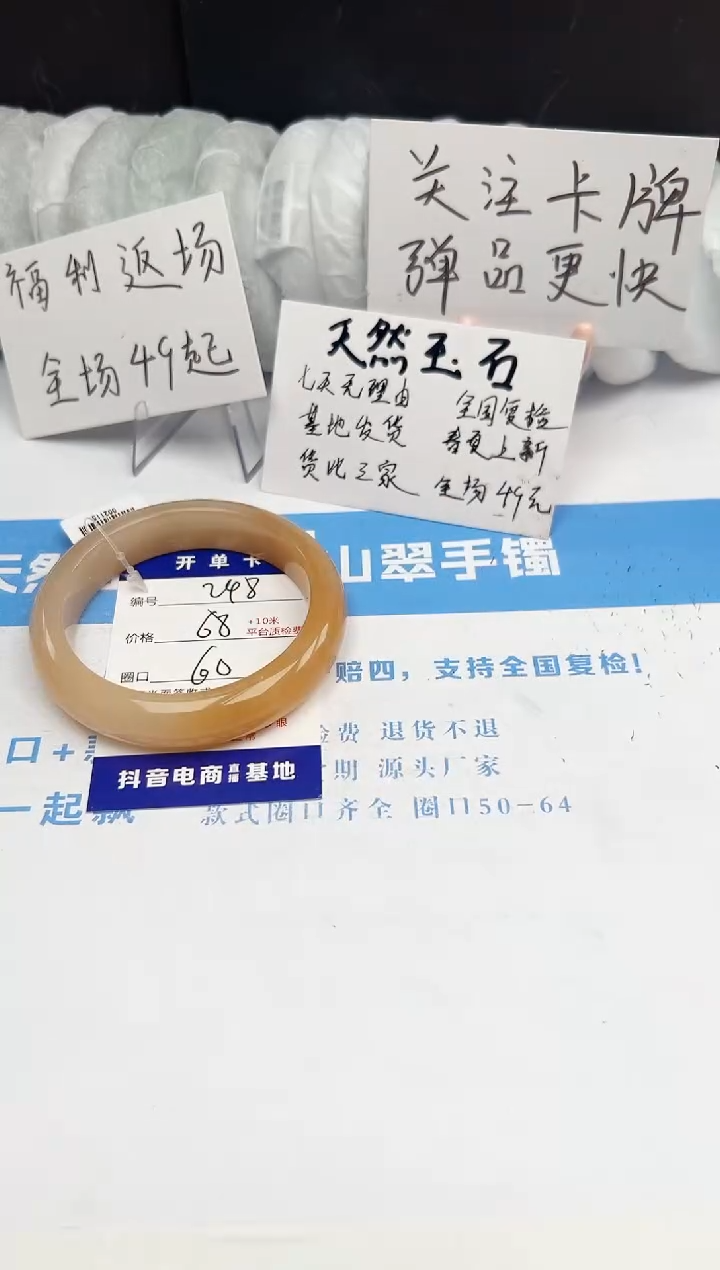 关注卡牌
弹品更快
福利返场
全场49起
天然玉石
七天无理由 全国复检
基地发货 春夏上新
货比三家 全场49元
天然 山翠手镯
开单卡
编号 248
价格 68 +10米
平台质检费
圈口 60
赔四，支持全国复检！
检费 退货不退
期 源头厂家
口+
抖音电商直播基地
一起飘
款式圈口齐全 圈口50-64